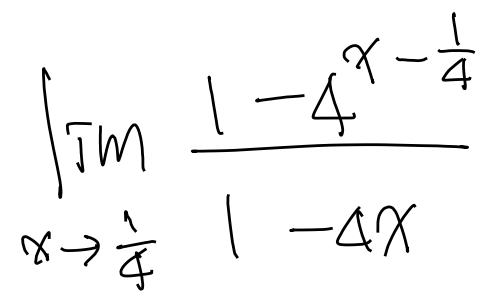 lim_{x→1/4} (1 − 4^{x − 1/4}) / (1 − 4x)